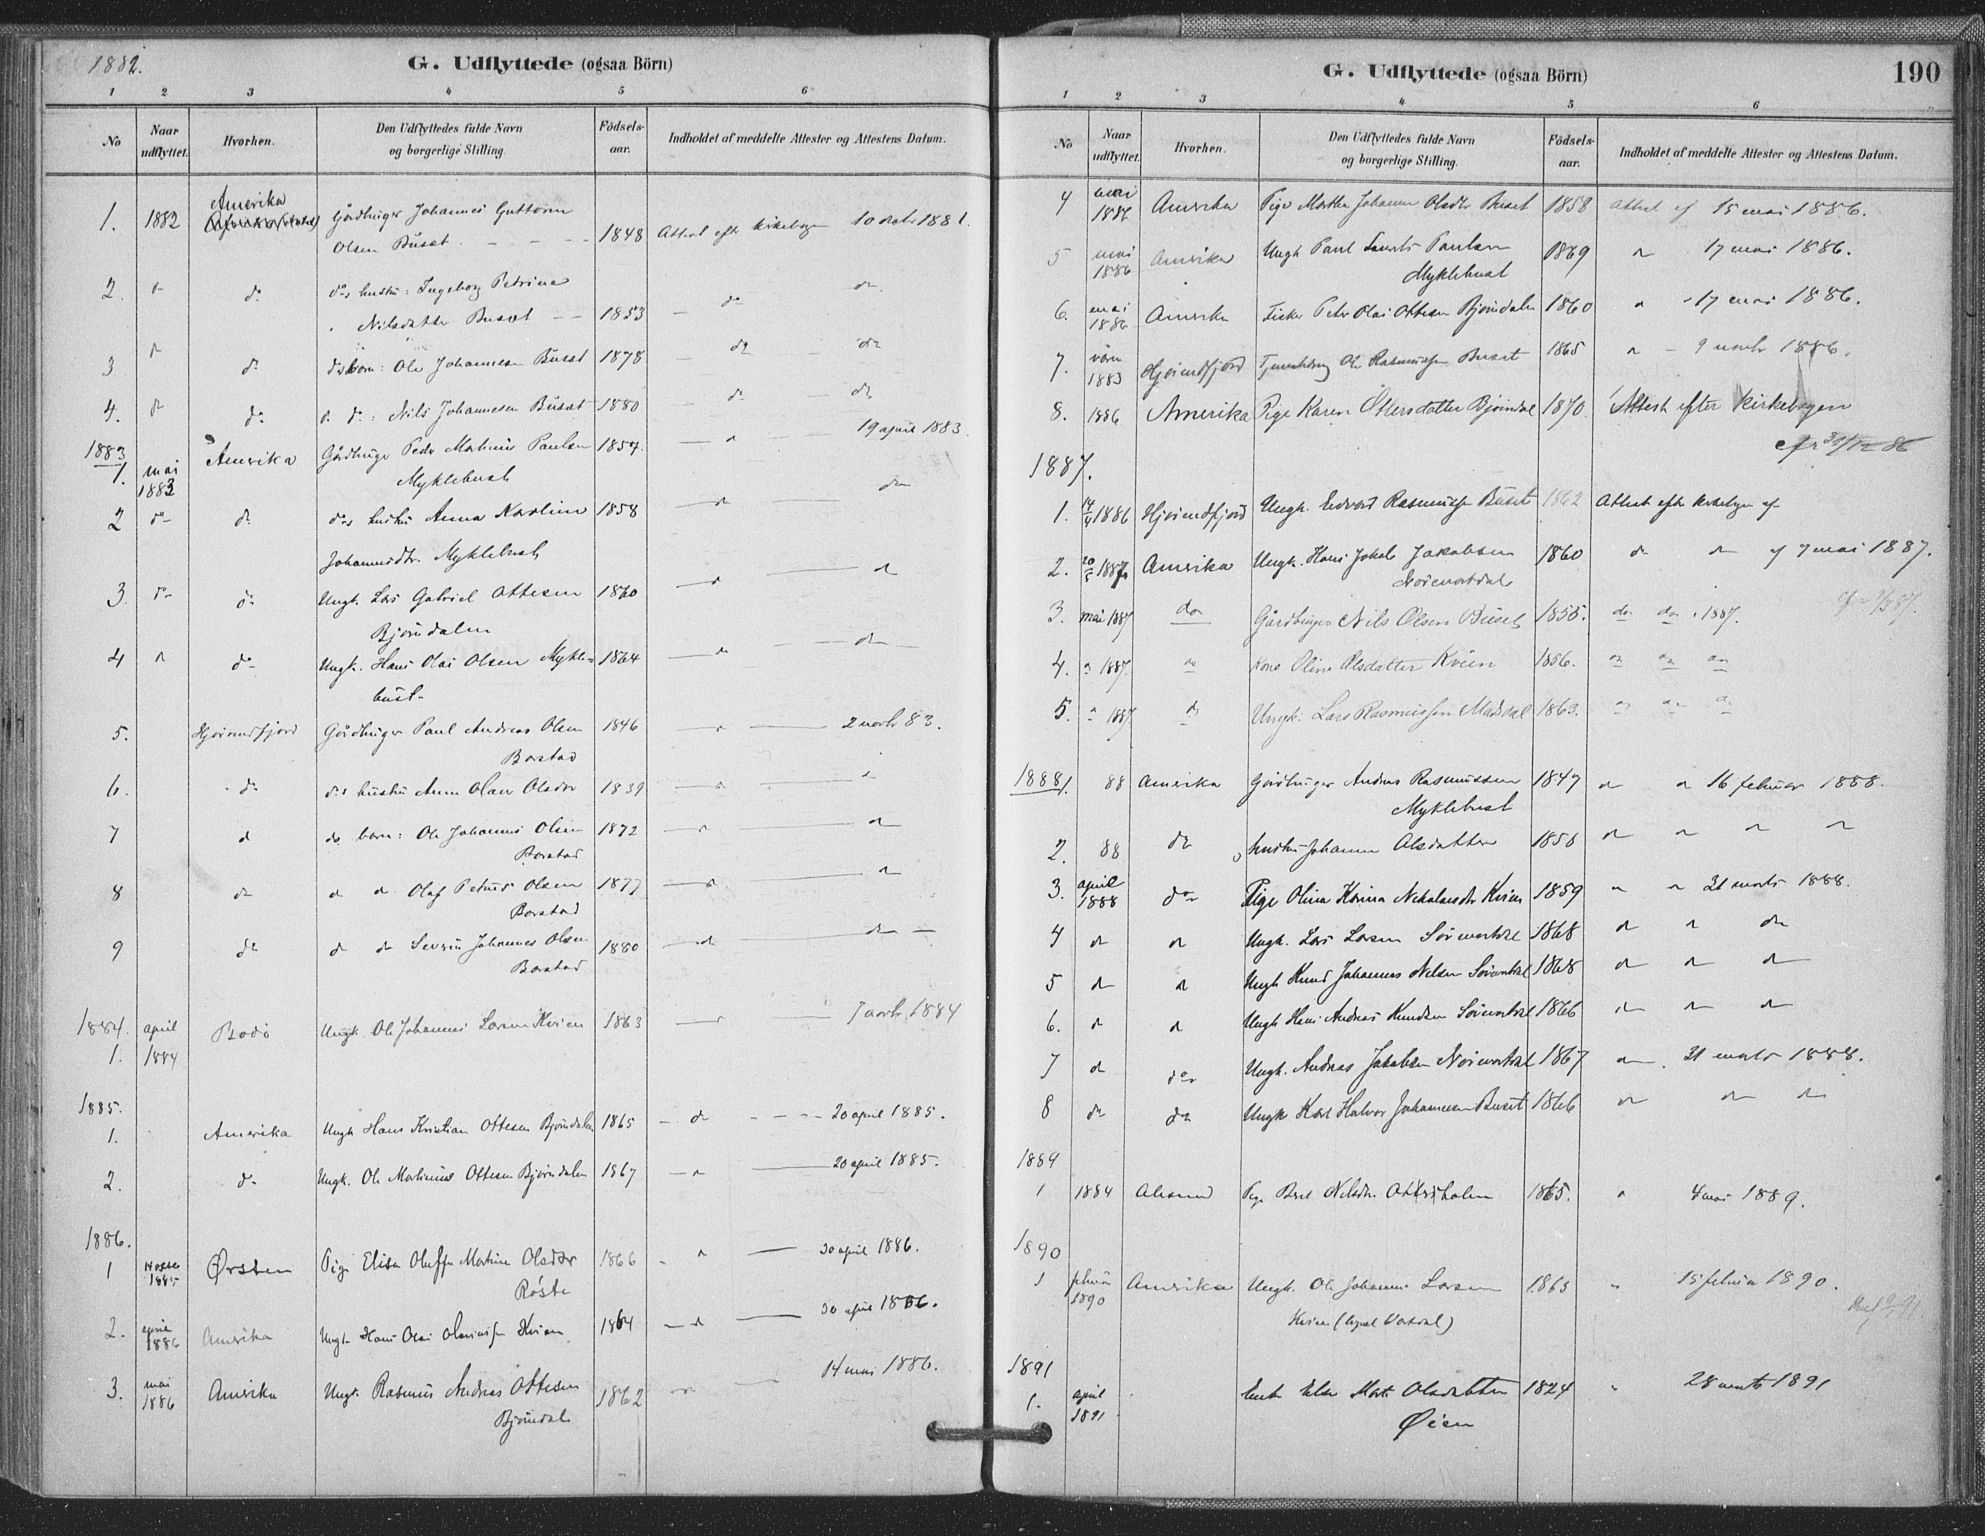 1882.
G. Udflyttede (ogsaa Börn)
1 2 3 4 5 6
No Naar udflyttet. Hvorhen. Den Udflyttedes fulde Navn og borgerlige Stilling. Födsels-aar. Indholdet af meddelte Attester og Attestens Datum.
1. 1882 Amerika Gårdbruger Johannes Guttorm
Olsen Buset 1848 Attest efter kirkebogen 10 1881.
2. d- do ds hustru: Ingeborg Petrine
Nilsdatter Buset 1853 do do
3 d- do ds børn: Ole Johannesen Buset 1878 do do
4. d- do d. d.: Nils Johannesen Buset 1880 do do
1883
1. mai 1883 Amerika Gårdbruger Peder Martinus Paulsen 1857 19 april 1883.
Myklebust
2 do do ds hustru Anna Karoline 1858 do
Johannesdtr. Myklebust
3. do do Ungk. Lars Gabriel Ottesen 1860
Bjørndalen
4 do Ungk. Hans Olai Olsen Mykle- 1864 do
bust.
5. Hjørundfjord Gårdbruger Paul Andreas Olsen 1846 2 novbr 83.
Barstad
6. do ds hustru Anne Olave Olsdtr 1839
7 d ds børn: Ole Johannes Olsen 1872
Barstad
8 do d d Olaf Petnus Olsen 1877
Barstad
9 do d do Severin Johannes Olsen 1880 do
Barstad
1884. april
1. 1884 Bodø Ungk. Ole Johannes Larsen Kvien 1863 7 1884
1885.
1. Amerika Ungk Hans Kristian Ottesen Bjørndalen 1865 do 20 april 1885.
2. do Ungk. Ole Martinus Ottesen Bjørndalen 1867 20 april 1885.
1886.
1 1885 Ørsten Pige Elisa Oluffa Martine Olsdtr 1866 30 april 1886.
Røste
2. april 1886 Amerika Ungk Hans Olai Kvien 1864 30 april 1886.
3. mai 1886 Amerika Ungk. Rasmus Andreas Ottesen 1862 14 mai 1886.
Bjørndal
190
G. Udflyttede (ogsaa Börn)
1 2 3 4 5 6
No Naar udflyttet. Hvorhen. Den Udflyttedes fulde Navn og borgerlige Stilling. Födsels-aar. Indholdet af meddelte Attester og Attestens Datum.
4 mai 1886 Amerika Pige Marthe Johanne Olsdtr Buset 1858 Attest af 15 mai 1886.
5 mai 1886 Amerika Ungk Paul Laurits Paulsen 1869 17 mai 1886.
Myklebust
6. mai 1886 Amerika Fisker Peter Olai Ottesen Bjørndalen 1860 17 mai 1886.
7. 1883 Hjørundfjord Ole Rasmussen Buset 1865 9 novbr 1886.
8. 1886 Amerika Pige Karen Ottersdatter Bjørndal 1870 Attest efter kirkebogen
af 31/12 86
1887.
1. 14/4 1886 Hjørundfjord Ungk. Edvard Rasmussen Buset 1862 Attest efter kirkebogen af
2. 20/5 1887 Amerika Ungk. Hans Jakob Jakobsen 1860 do do af 7 mai 1887.
Nørevartdal
3. mai 1887 do Gårdbruger Nils Olsen Buset 1855. do do 1887.
4. 1887. do Kone Oline Olsdatter Kvien 1856. do do do
5. 1887 do Ungk. Lars Rasmussen 1863. do do do
1888
1. 88 Amerika Gårdbruger Andreas Rasmussen 1847 16 februar 1888.
Myklebust
2. 88 do hustru Johanne Olsdatter 1850
3. april 1888 do Pige Olina Karina Nikolaisdtr Kvien 1859 21 marts 1888.
4 do do Ungk. Lars Larsen Sørevartdal 1868 do
5 do do Ungk Knud Johannes Nilsen Sørevartdal 1868 do
6. do do Ungk Hans Andreas Knudsen Sørevartdal 1866 do
7 do do Ungk. Andreas Jakobsen Nørevartdal 1867 21 marts 1888.
8 do do Ungk Karl Halvor Johannesen Buset 1866 do do
1889
1 1884 Alesund Pige Nilsdtr. Ottersholm 1865. 4 mai 1889.
1890
1 februar 1890 Amerika Ungk. Ole Johannes Larsen 1863 15 februar 1890.
Kvien
1891
1. april 1891 Enke Else Marte Olsdatter 1824 28 marts 1891
Øien